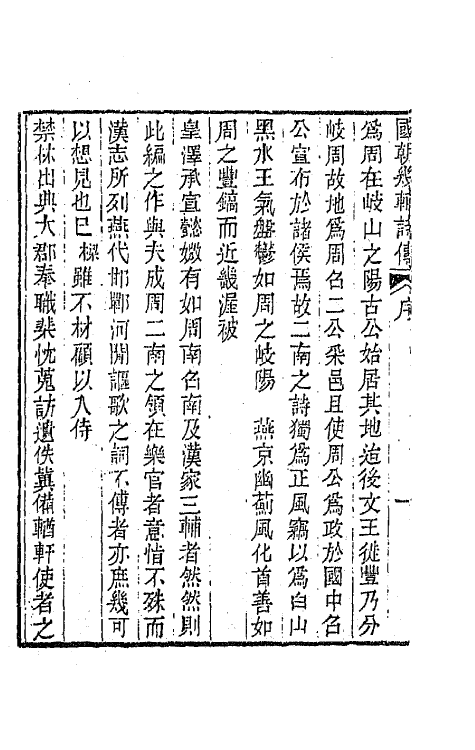 國朝畿輔詩傳 序 一
為周在岐山之陽古公始居其地迨後文王徙豐乃分
岐周故地為周召二公采邑且使周公為政於國中召
公宣布於諸侯焉故二南之詩獨為正風竊以為白山
黑水王氣盤鬱如周之岐陽 燕京幽薊風化首善如
周之豐鎬而近畿渥被
皇澤承宣懿媺有如周南召南及漢家三輔者然然則
此編之作與夫成周二南之領在樂官者意恉不殊而
漢志所列燕代邯鄲河閒謳歌之詞不傳者亦庶幾可
以想見也已樑雖不材顧以入侍
禁林出典大郡奉職柴忱蒐訪遺佚冀備輶軒使者之